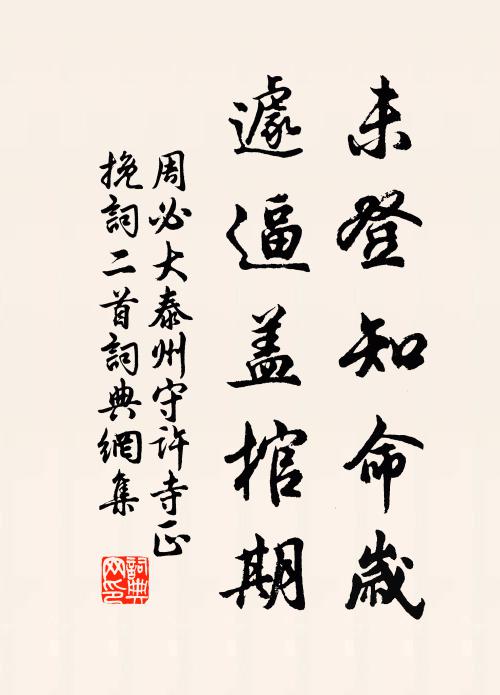 未登知命歲
遽逼盖棺期
周必大泰州守許寺正
挽詞二首詞典網集
詞典
网印